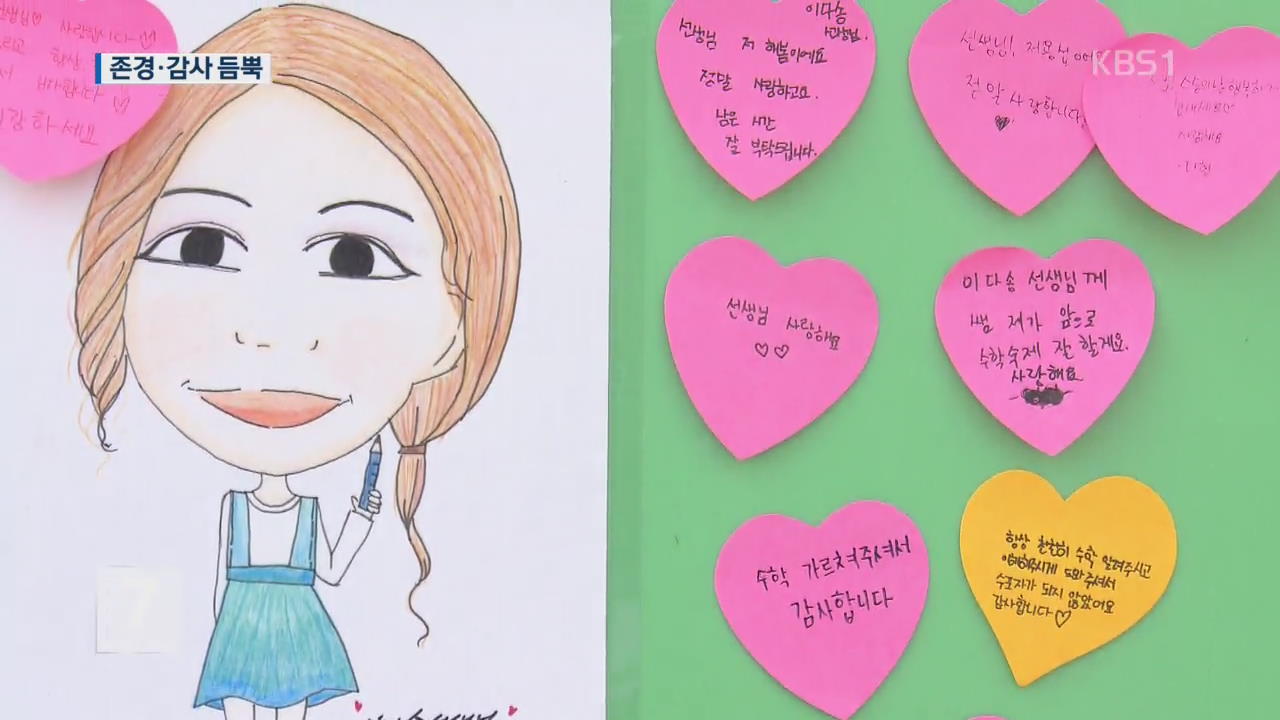 존경·감사 듬뿍
KBS1
사랑합니다
항상
이다송
선생님
선생님 저 해봄이에요
정말 사랑하고요.
남은 시간
잘 부탁드립니다.
선생님!
정말 사랑합니다.
사랑해요
선생님 사랑해요
♡♡
이다송 선생님께
쌤 제가 앞으로
수학숙제 잘 할게요.
사랑해요
수학 가르쳐주셔서
감사합니다
항상 친절히 수학 알려주시고
도와주셔서
수포자가 되지 않았어요
감사합니다♡